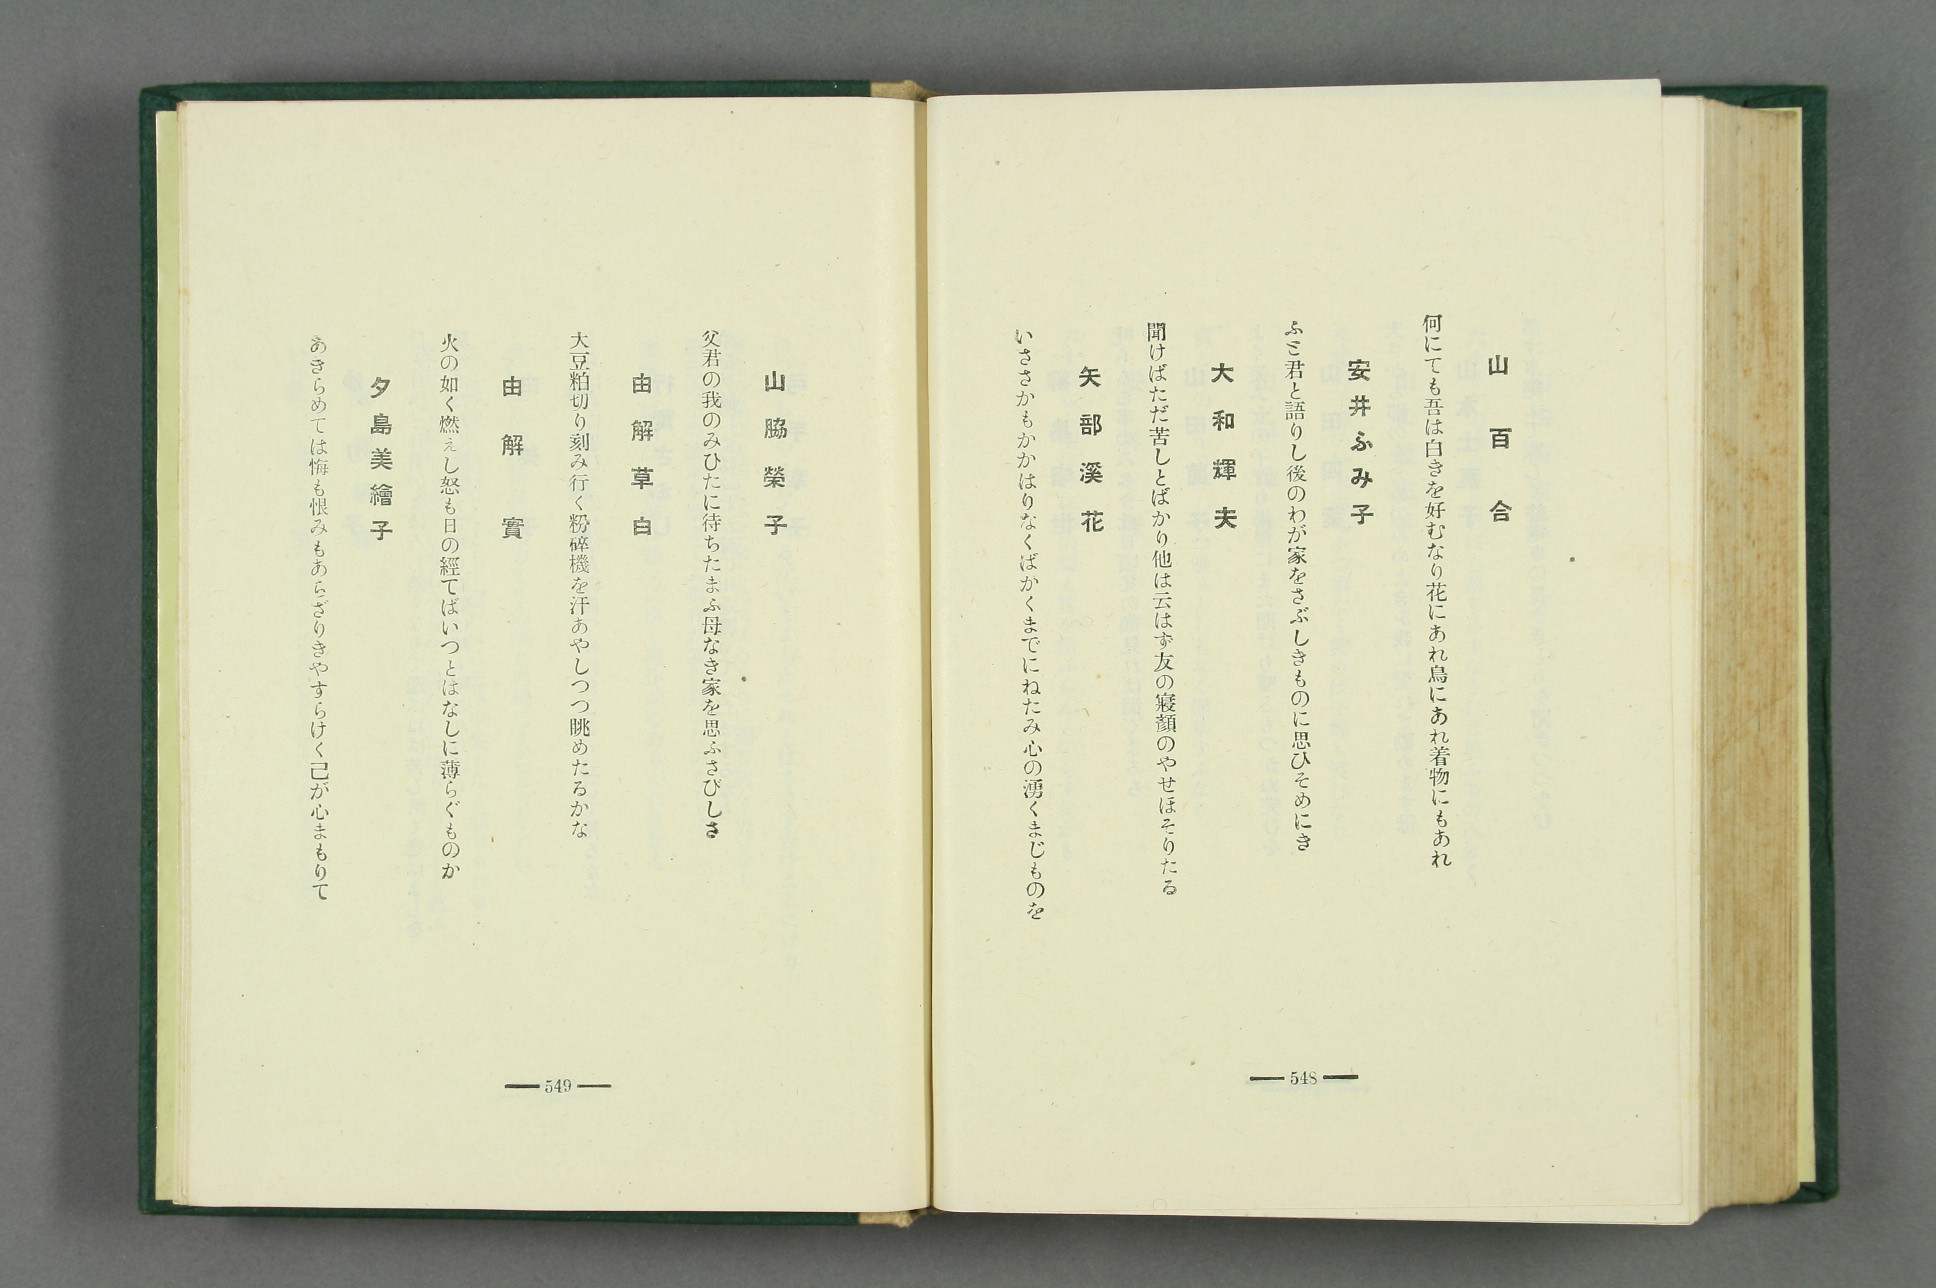 山百合
何にても吾は白きを好むなり花にあれ鳥にあれ着物にもあれ
安井ふみ子
ふと君と語りし後のわが家をさぶしきものに思ひそめにき
大和輝夫
聞けばただ苦しとばかり他は云はず友の寢顏のやせほそりたる
矢部溪花
いささかもかかはりなくばかくまでにねたみ心の湧くまじものを
548
山脇榮子
父君の我のみひたに待ちたまふ母なき家を思ふさびしさ
由解草白
大豆粕切り刻み行く粉碎機を汗あやしつつ眺めたるかな
由解實
火の如く燃えし怒も日の經てばいつとはなしに薄らぐものか
夕島美繪子
あきらめては悔も恨みもあらざりきやすらけく己が心まもりて
549